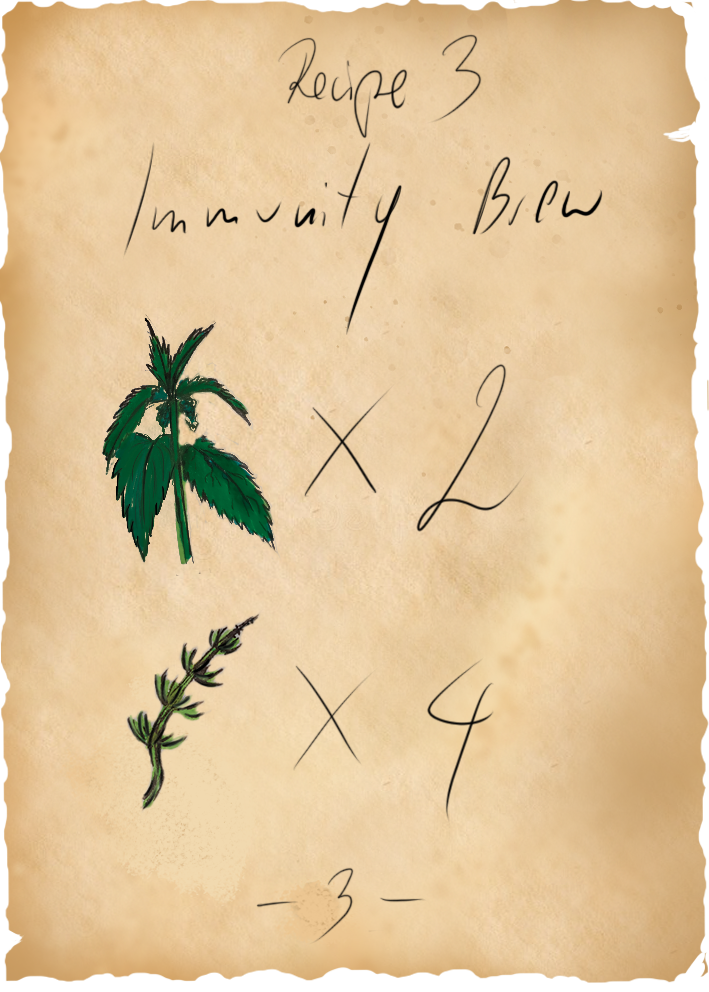 Recipe 3
Immunity Brew
x 2
x 4
- 3 -